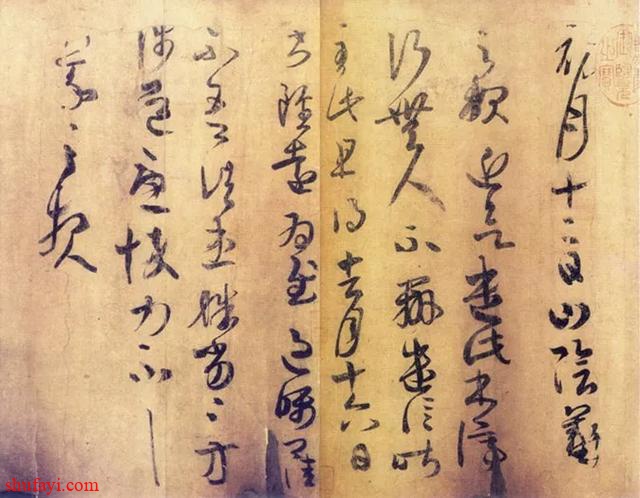 初月十二日山陰羲
之報近欲遣此書停
行無人不辦遣信昨
至此且得去月十六日
書雖遠為慰過囑卿佳
不吾諸患殊劣殊劣方
涉道憂悴力不具
羲之報
shufayi.com